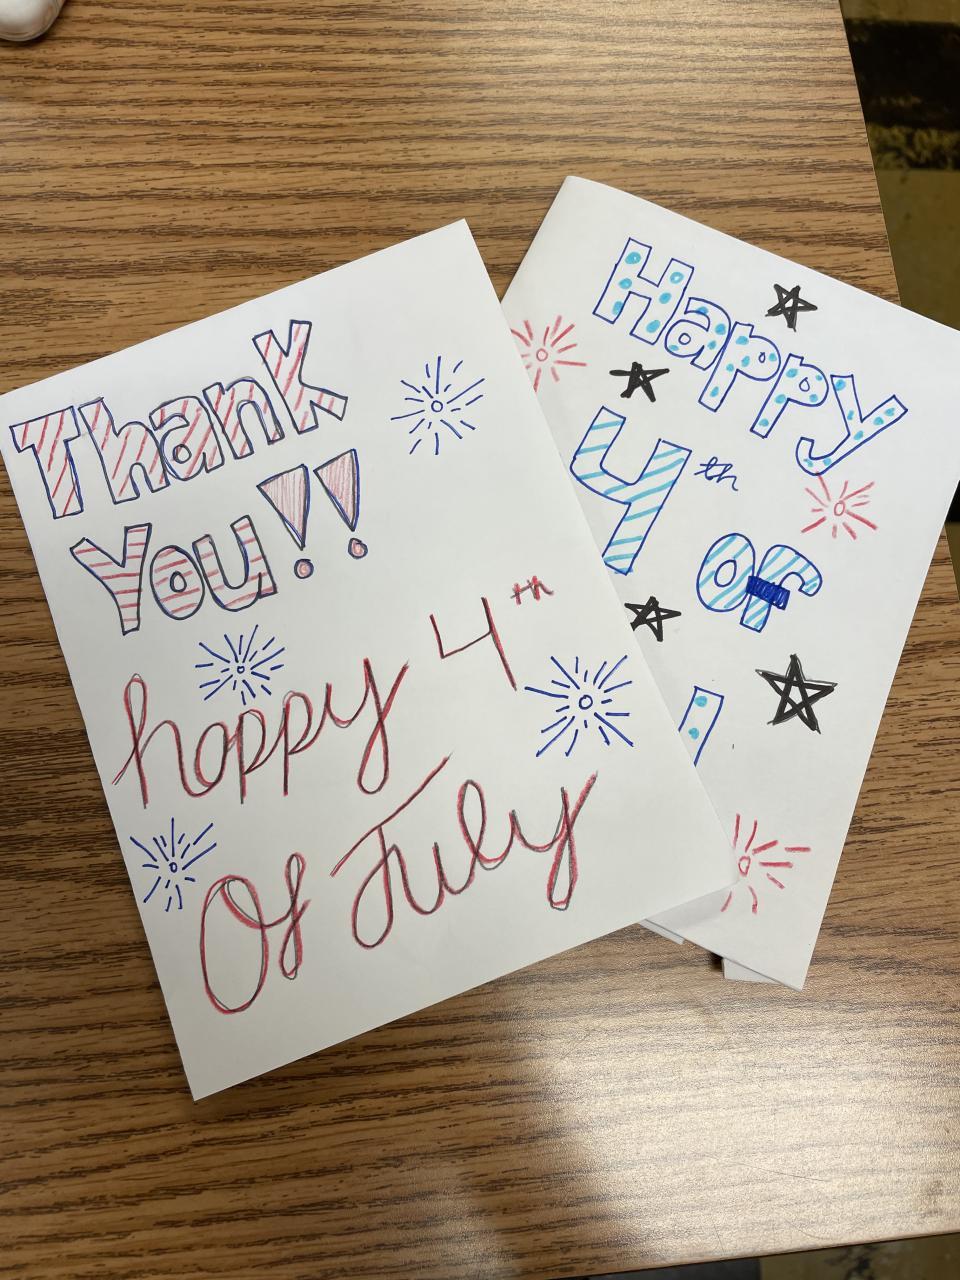 Thank
You!!
happy 4th
Of July
Happy
4th
of
J